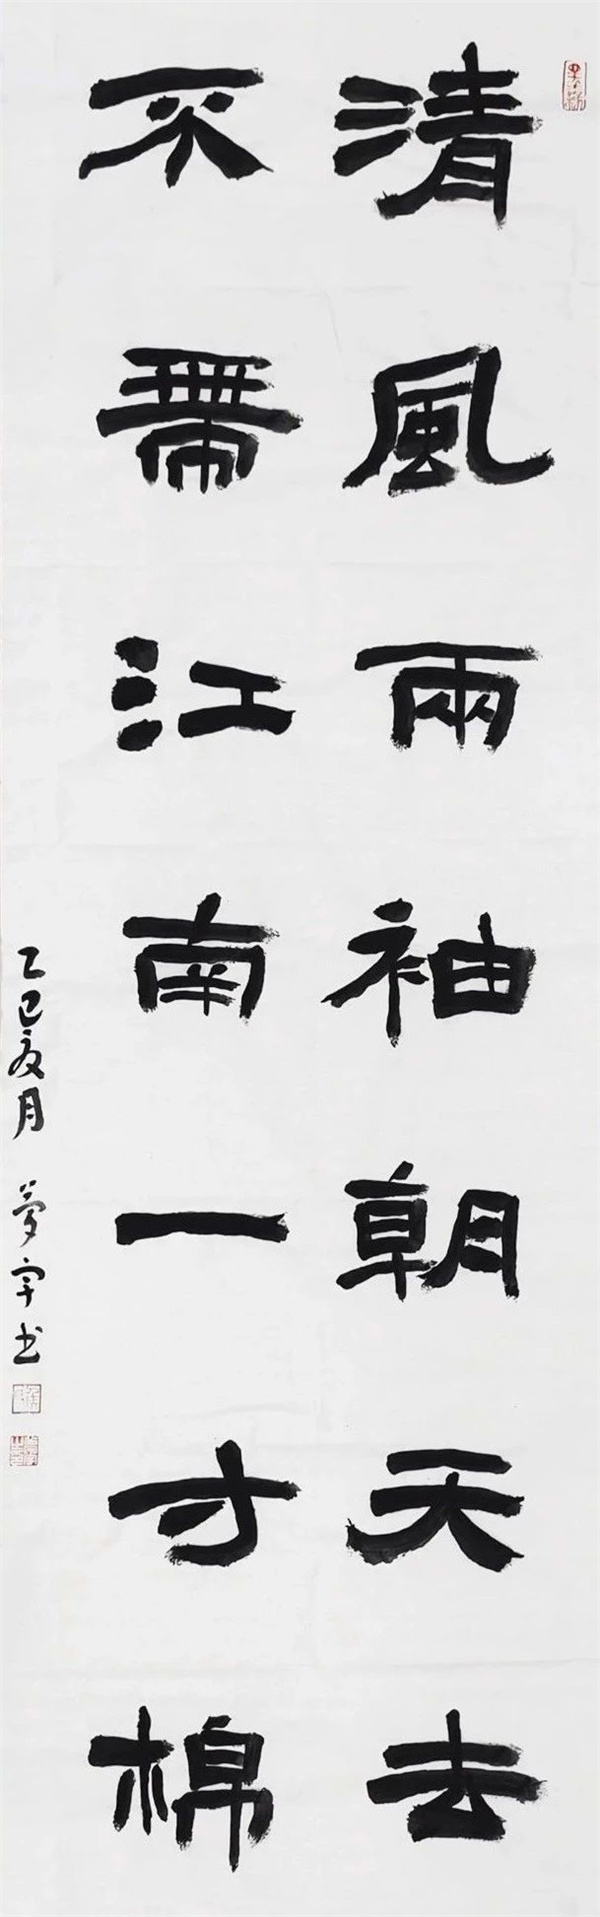 清風兩袖朝天去
不帶江南一寸棉
乙巳夏月 夢宇书